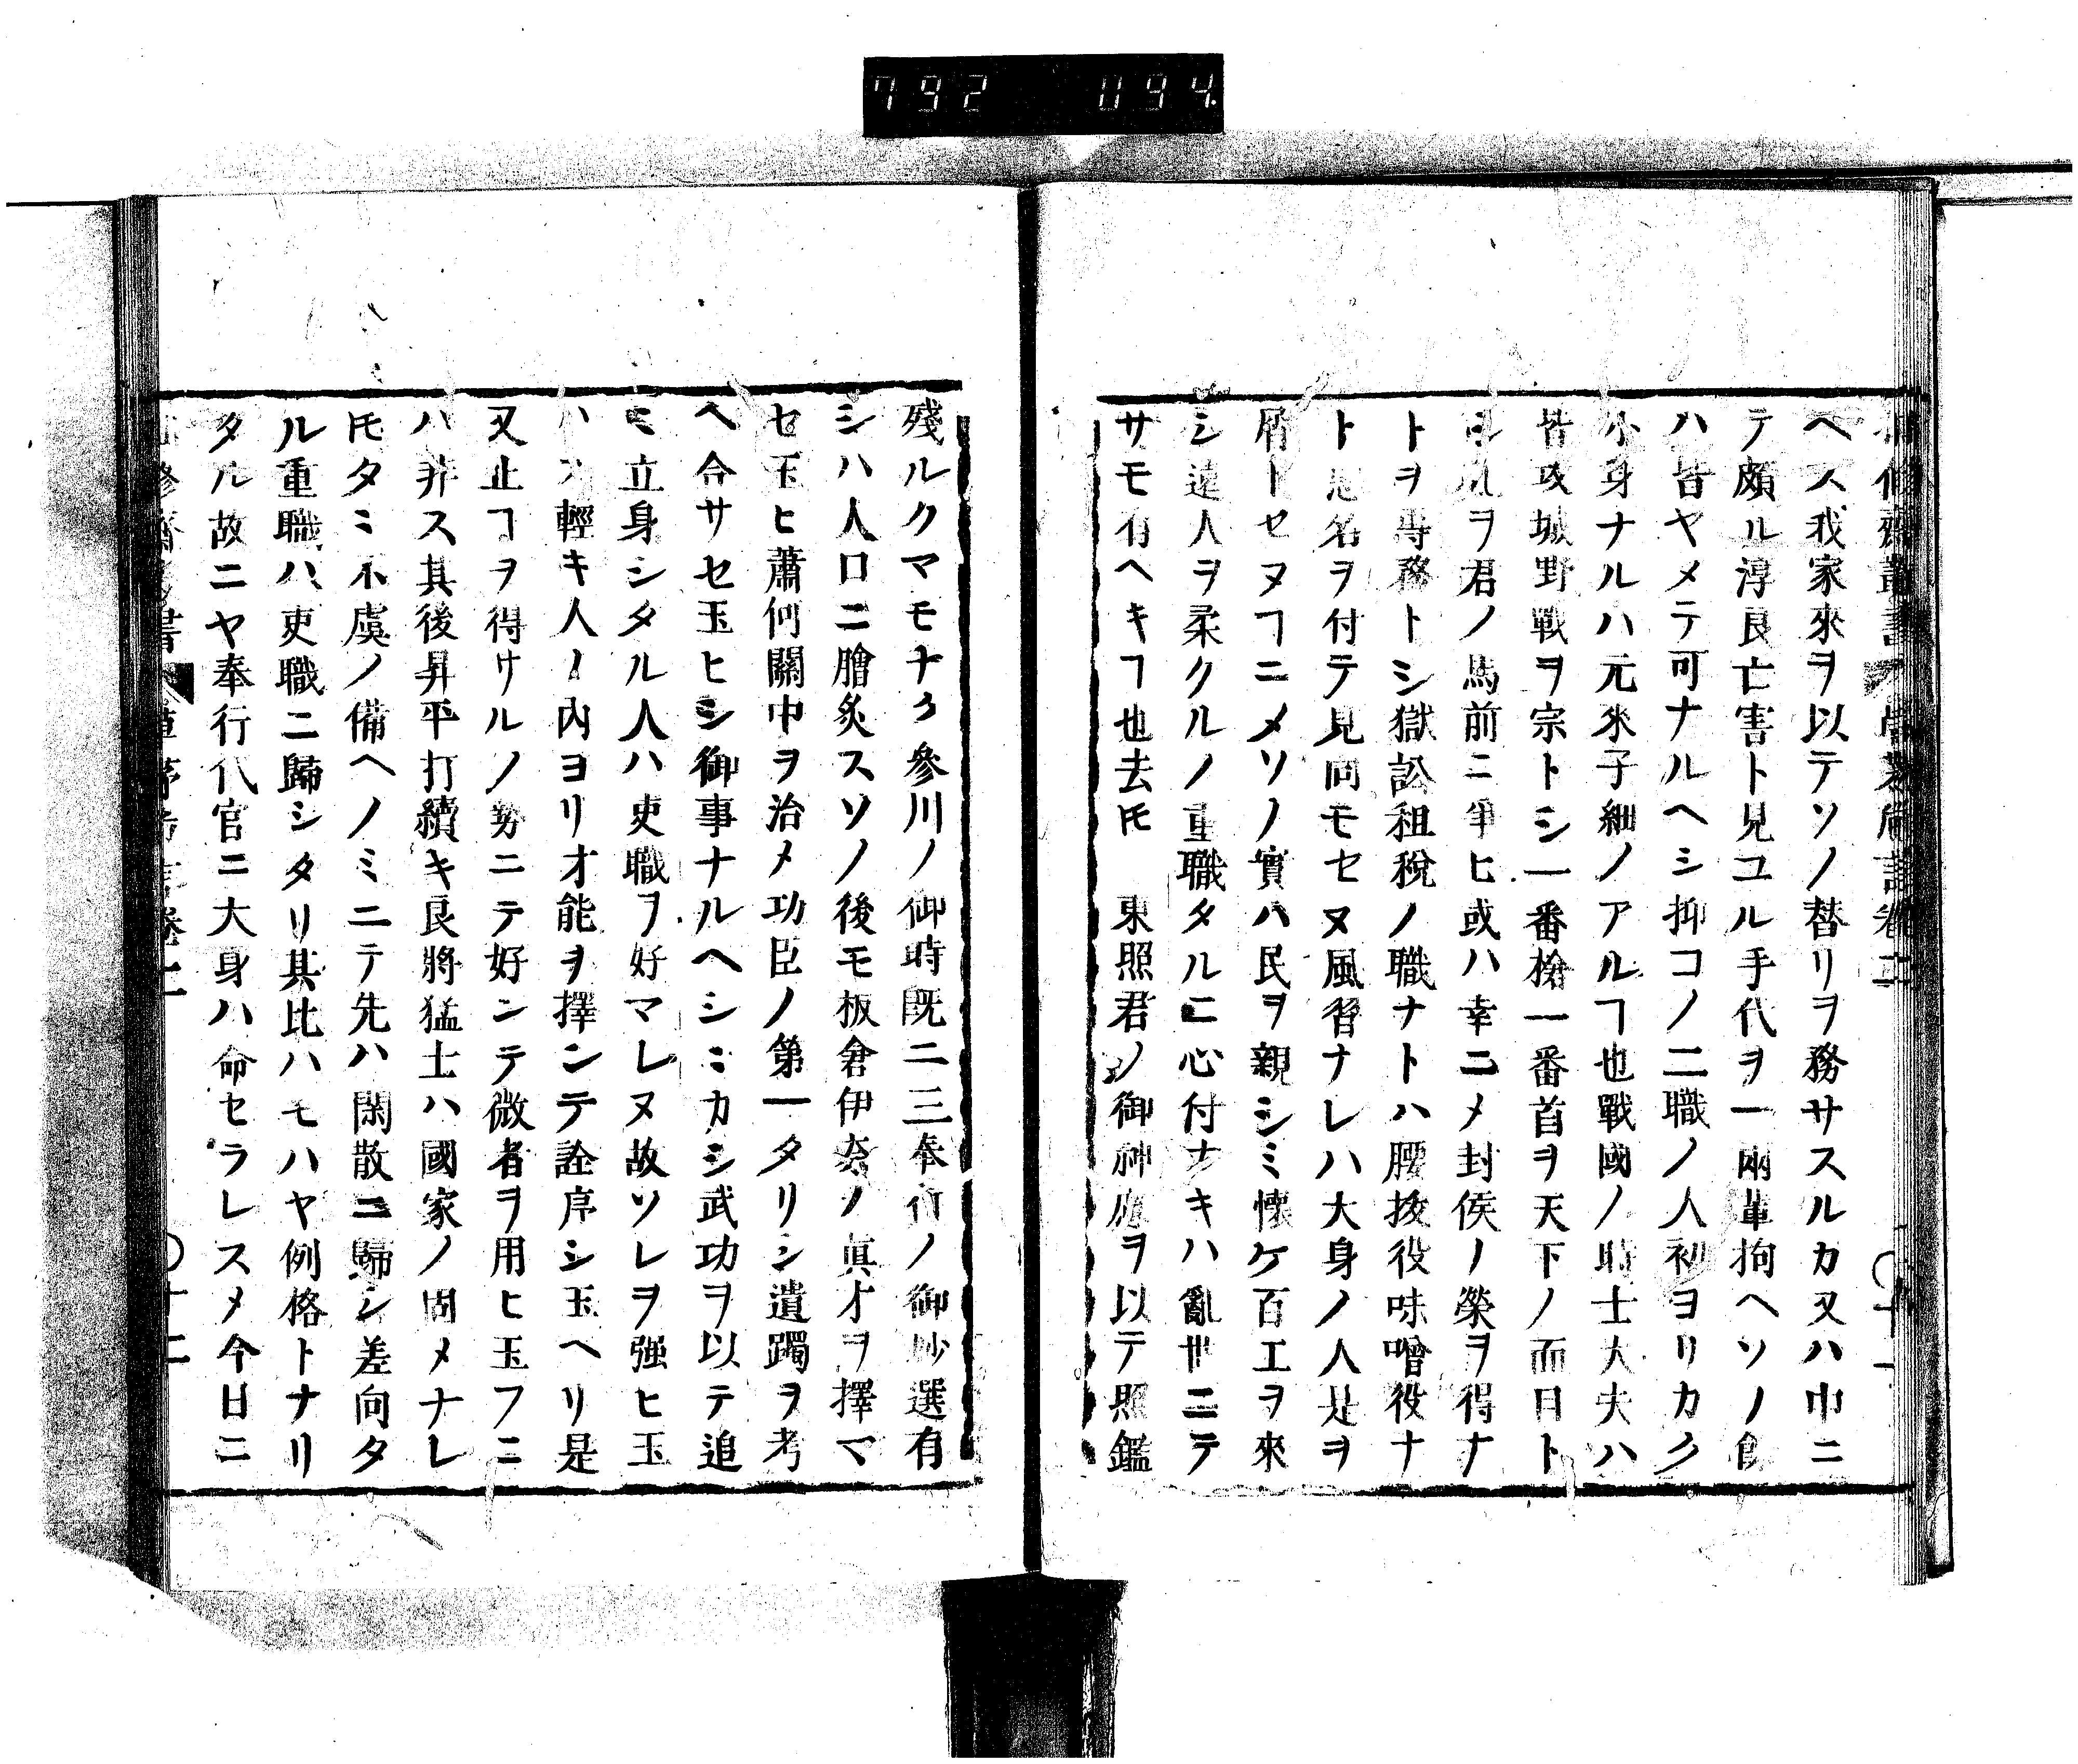 792 094
ヘス我家來ヲ以テソノ替リヲ務サスルカ又ハ巾ニ
テ頗ル淳良亡害ト見ユル手代ヲ一兩輩拘ヘソノ
ハ皆ヤメテ可ナルヘシ抑コノ二職ノ人初ヨリカク
小身ナルハ元來子細ノアルヿ也戰國ノ時士大夫ハ
皆攻城野戰ヲ宗トシ一番槍一番首ヲ天下ノ面目ト
シ ヲ君ノ馬前ニ爭ヒ或ハ幸ニメ封侯ノ榮ヲ得ナ
トヲ專務トシ獄訟租稅ノ職ナトハ腰拔役味噌役ナ
ト惡名ヲ付テ見向モセヌ風習ナレハ大身ノ人是ヲ
屑トセヌヿニメソノ實ハ民ヲ親シミ懷ケ百工ヲ來
シ遠人ヲ柔クルノ重職タルニ心付ナキハ亂世ニテ
サモ有ヘキヿ也去𪜈 東照君ノ御神慮ヲ以テ照鑑
殘ルクマモナク參川ノ御時既ニ三奉行ノ御妙選有
シハ人口ニ膾炙スソノ後モ板倉伊奈ノ眞才ヲ擇マ
セ玉ヒ蕭何關中ヲ治メ功臣ノ第一タリシ遺躅ヲ考
ヘ合サセ玉ヒシ御事ナルヘシミカシ武功ヲ以テ追
ミ立身シタル人ハ吏職ヲ好マレヌ故ソレヲ强ヒ玉
ハス輕キ人ノ內ヨリ才能ヲ擇ンテ詮序シ玉ヘリ是
又止ヿヲ得サルノ勢ニテ好ンテ微者ヲ用ヒ玉フニ
ハ非ス其後昇平打續キ良將猛士ハ國家ノ固メナレ
𪜈タミ不虞ノ備ヘノミニテ先ハ閑散ニ歸シ差向タ
ル重職ハ吏職ニ歸シタリ其比ハモハヤ例格トナリ
タル故ニヤ奉行代官ニ大身ハ命セラレスメ今日ニ